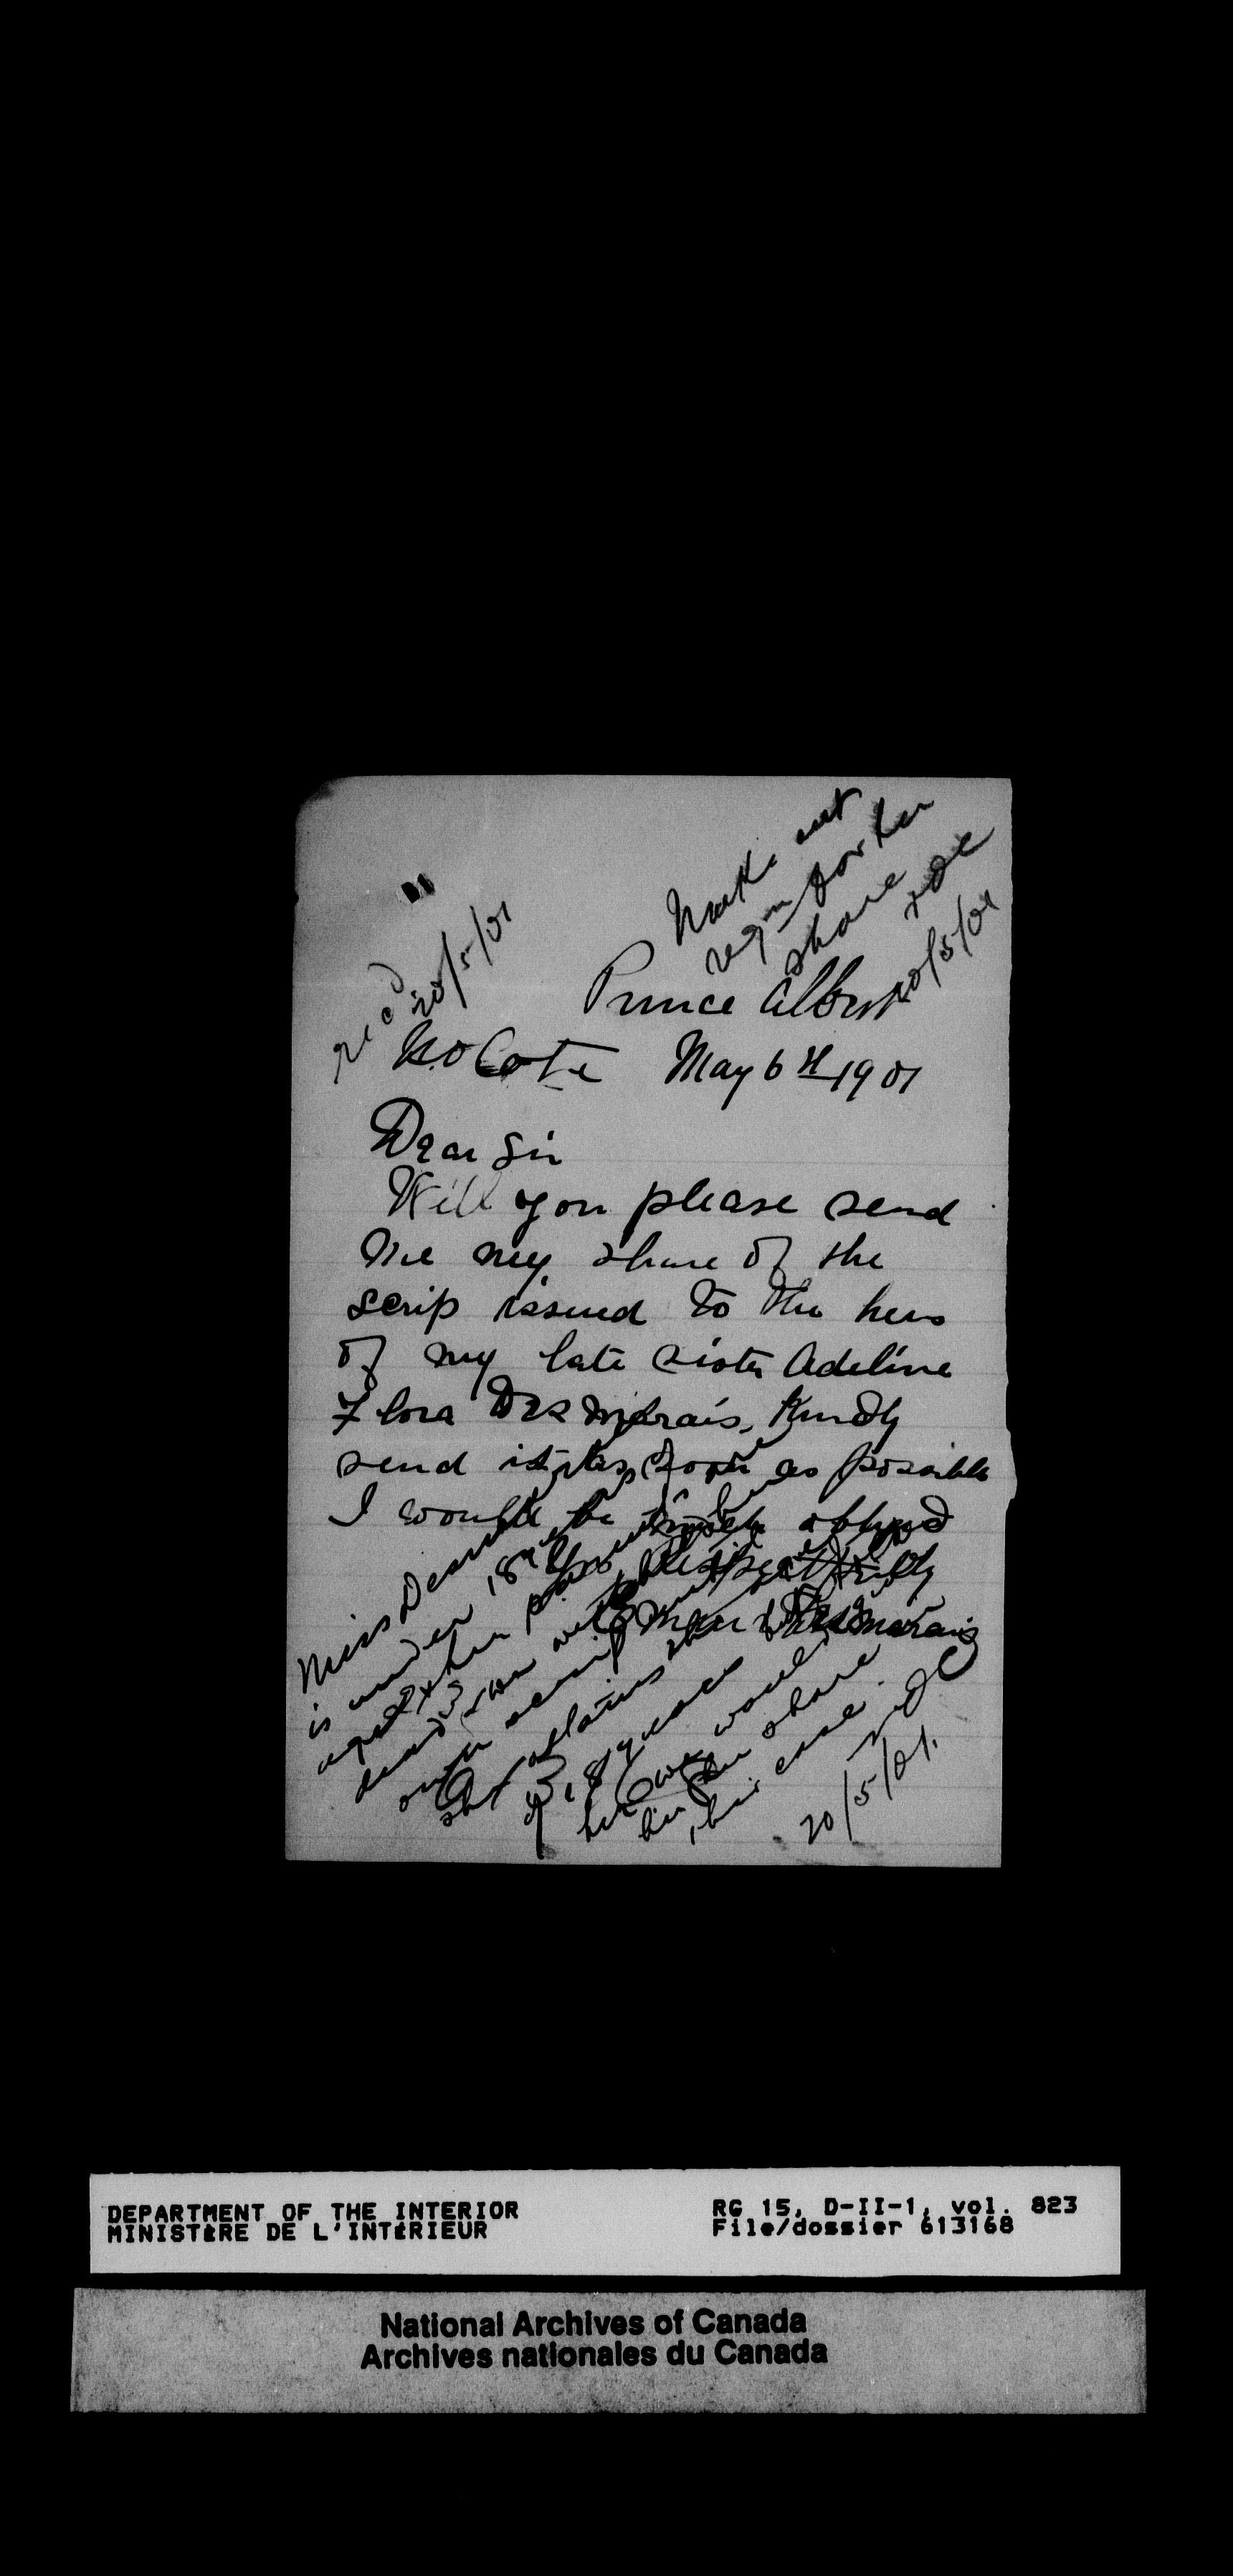 Make out
reqn for her
share
NOC
20/5/01
recd
20/5/01
Prince Albert
N.O Cote May 6th 1901
Dear Sir
Will you please send
me my share of the
scrip issued to the heirs
of my late sister Adeline
Flora DesMarais, Kindly
send it as soon as possible
I would be much obliged
Respectfully
DesMarais
Miss Desmarais
is under 18 years
aged & her parents
dead
own scrip
she attains
of 18 years
we would
her share
her case.
NOC
20/5/01.
DEPARTMENT OF THE INTERIOR
MINISTÈRE DE L'INTÉRIEUR
RG 15, D-II-1, vol. 823
File/dossier 613168
National Archives of Canada
Archives nationales du Canada